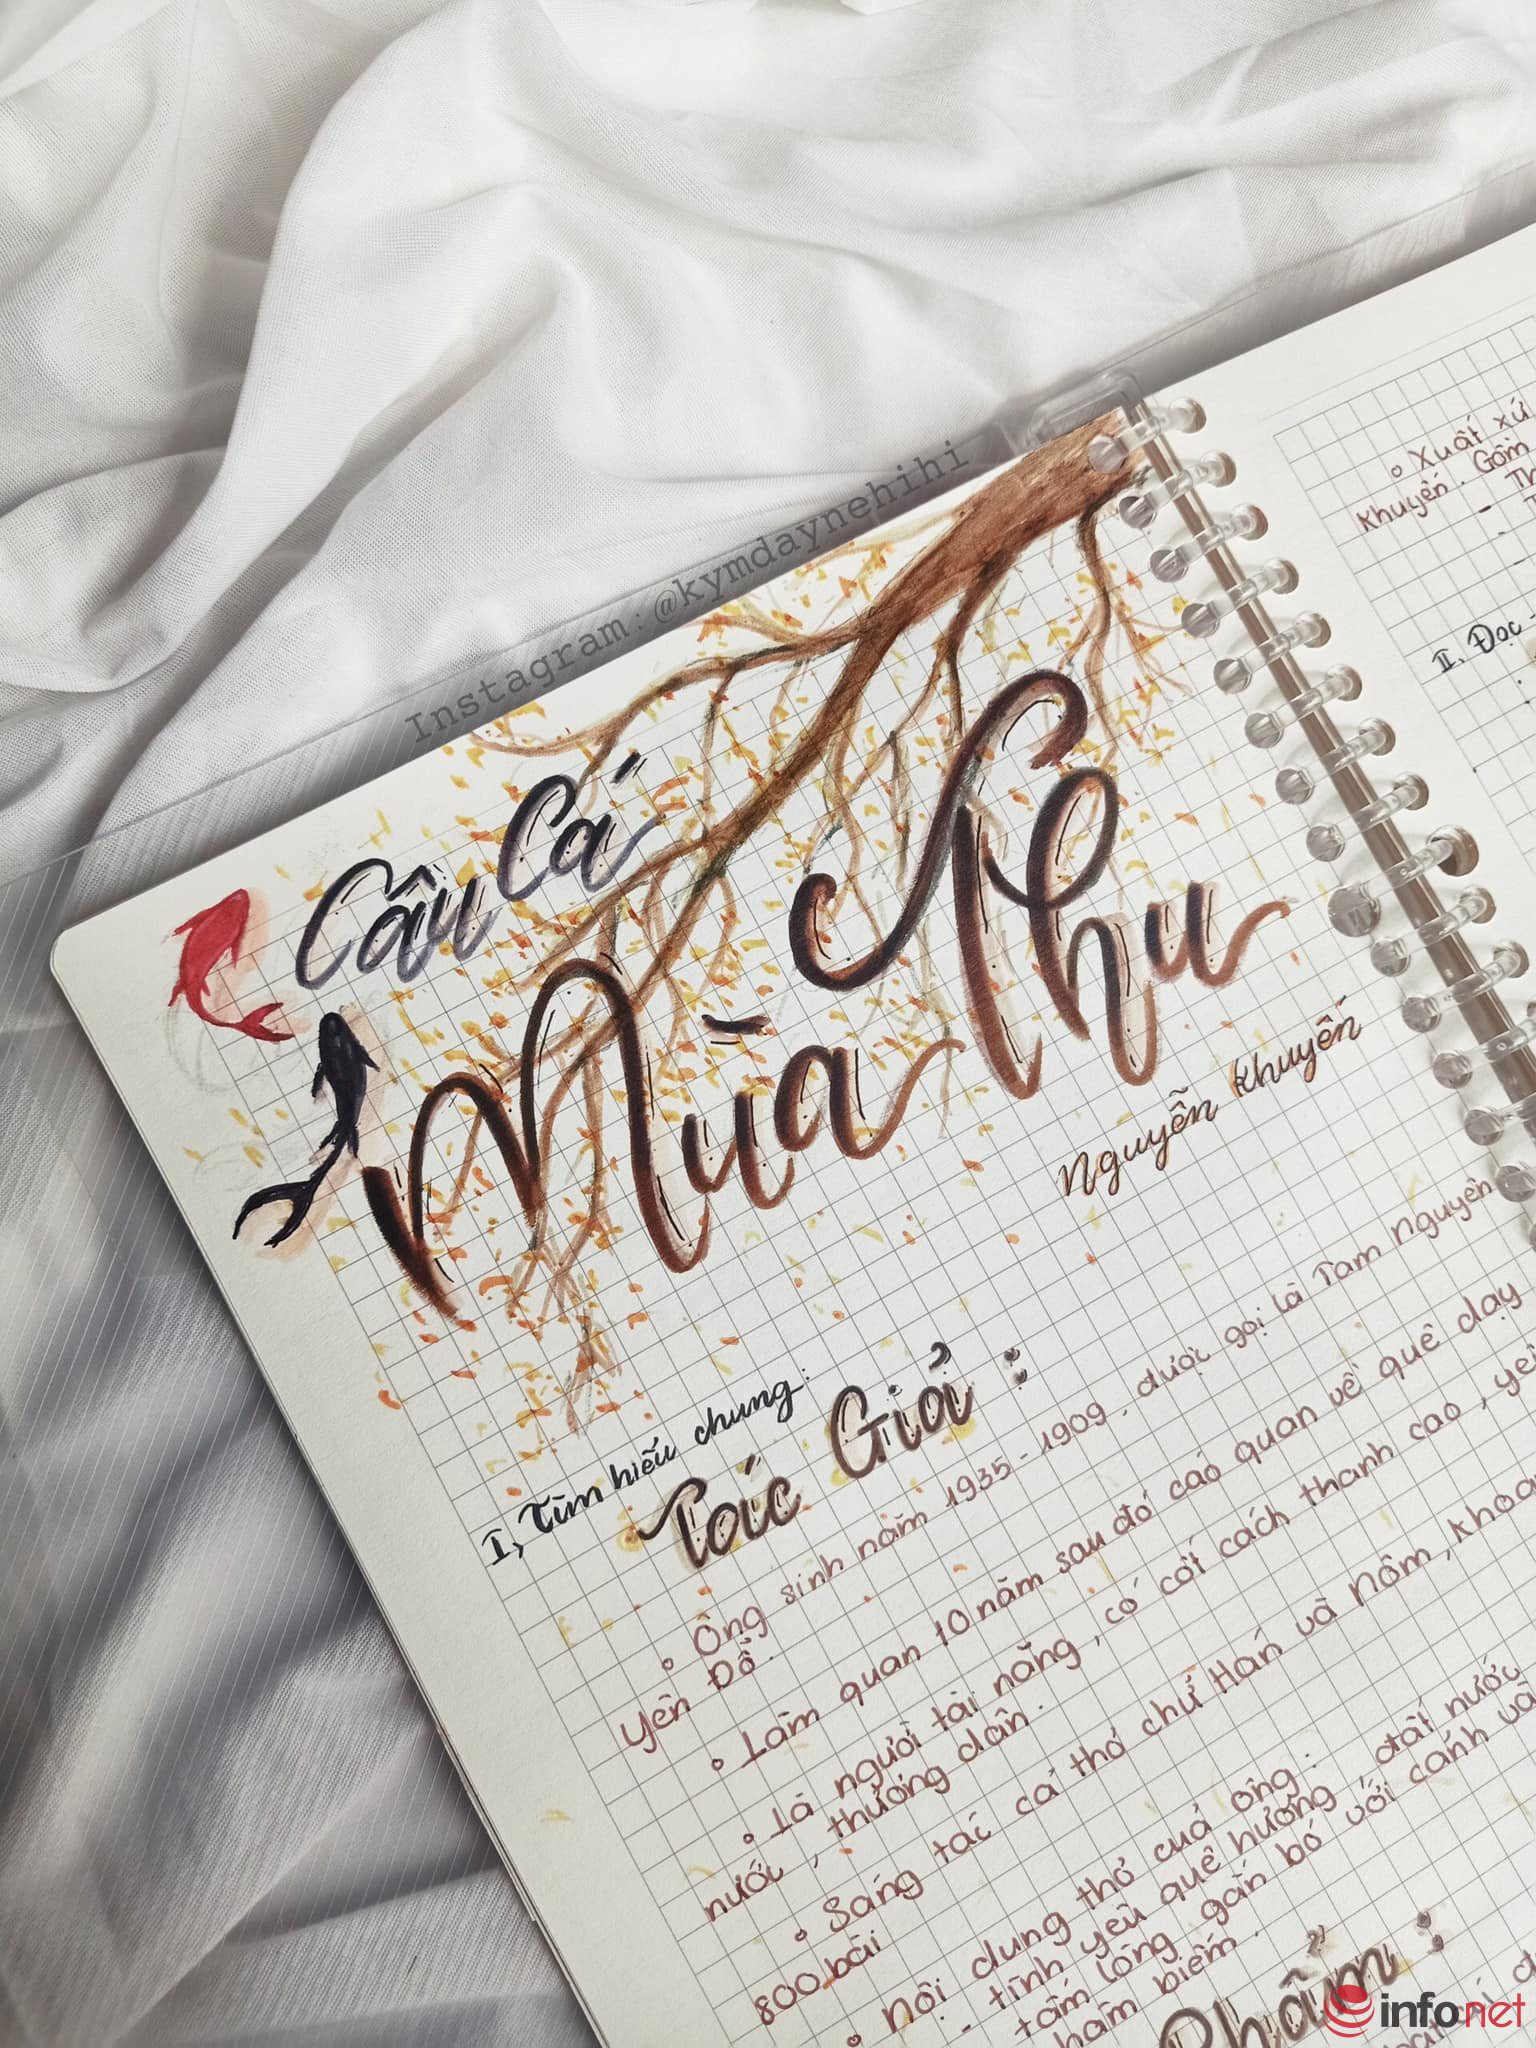 Instagram: @kymdaynehihi
Câu Cá
Mùa Thu
Nguyễn Khuyến
I, Tìm hiểu chung:
Tác Giả:
Ông sinh năm 1935-1909, được gọi là Tam Nguyên
Yên Đổ.
Làm quan 10 năm sau đó cáo quan về quê dạy
Là người tài năng, có cốt cách thanh cao, yê
nước, thương dân.
Sáng tác cả thơ chữ Hán và Nôm, khoa
800 bài
Nội dung thơ của ông: đất nước
- tình yêu quê hương
- tấm lòng gắn bó với cảnh và
hám biếm.
Phẩm:
Xuất xứ
Khuyến. Gồm
- Th
II, Đọc -
infonet